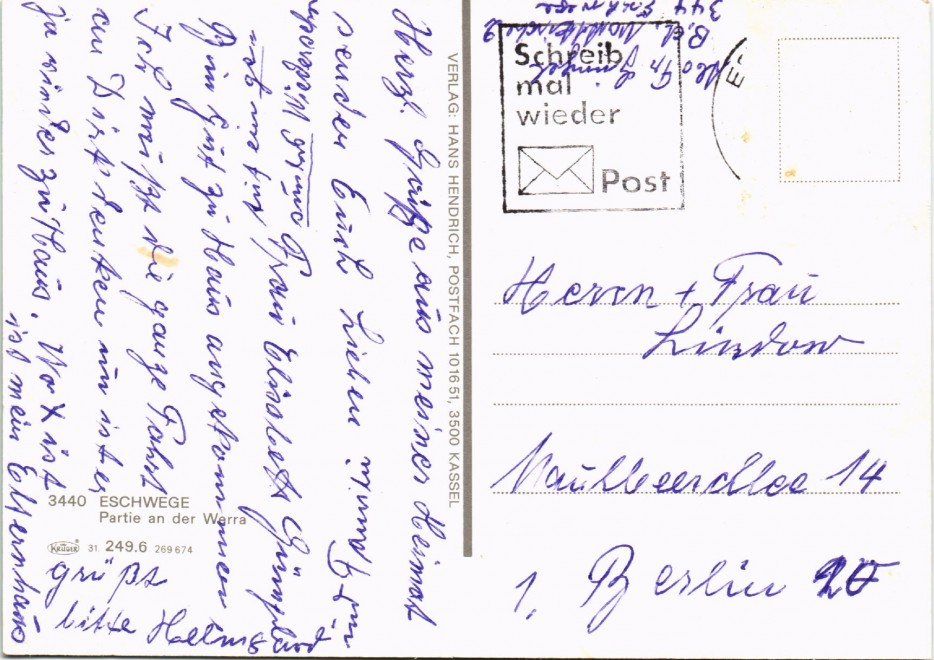 Herzl. Grüße aus meiner Heimat
senden Euch Lieben
Frau Elisabett
Bin gut zu Haus angekommen
Ich mußt die ganze Fahrt
an Dir denken nun ist es
ja wieder zu Haus. Wo X ist
ist mein Elternhaus
grüßt
bitte Helmut
3440 ESCHWEGE
Partie an der Werra
KRÜGER 31. 249.6 269674
VERLAG: HANS HENDRICH, POSTFACH 101651, 3500 KASSEL
Schreib
mal
wieder
Post
344 Eschwege
Herrn + Frau
Lindow
Maulbeerallee 14
1. Berlin 20